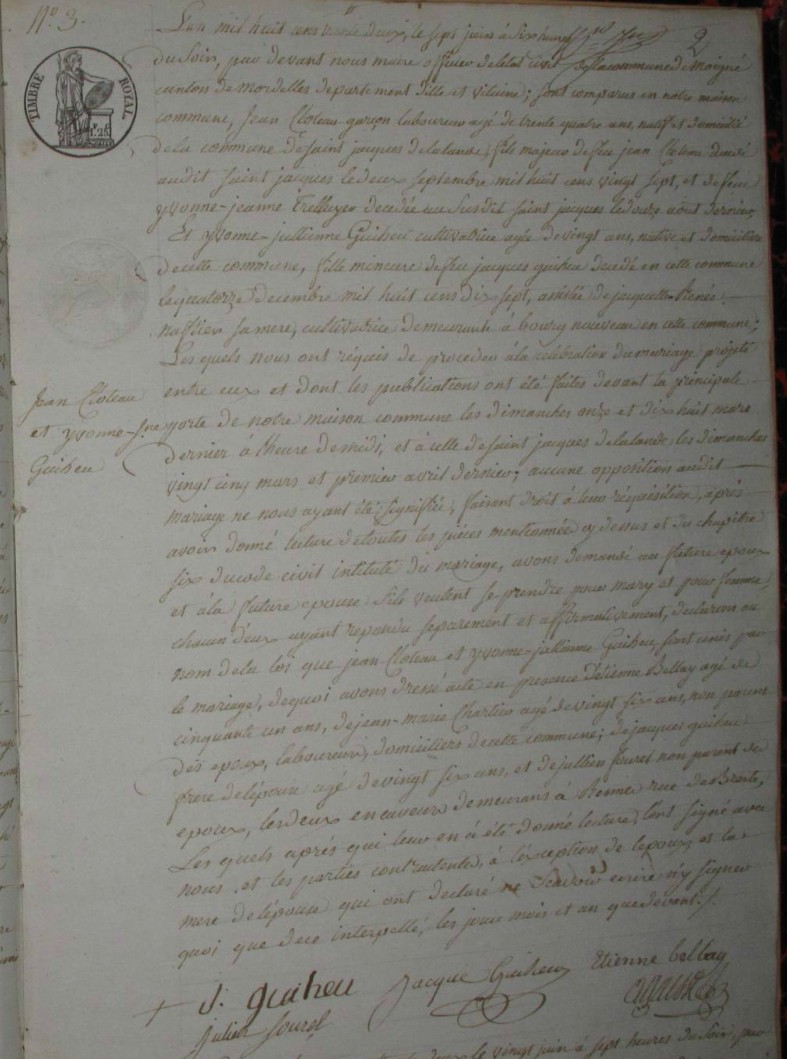 N.o 3.
2
TIMBRE ROYAL
L'an mil huit cens trente deux, le sept juin à six heures
du soir, par devant nous maire officier deletat civil dela commune de Moigné
canton de Mordelles departement d'ille et vilaine; sont comparus en notre maison
commune, Jean Cloteau garçon laboureur agé de trente quatre ans, natif et domicilié
de la commune de saint jacques delalande, fils majeur de feu jean Cloteau decedé
audit saint jacques le deux septembre mil huit cens vingt sept, et de feue
yvonne-jeanne decedée au susdit saint jacques le douze aout dernier,
Et yvonne-jullienne Guiheu cultivatrice agée de vingt ans, native et domiciliée
de cette commune, fille mineure de feu jacques guiheu decedé en cette commune
le quatorze decembre mil huit cens dix sept, assistée de jacquette-Renée
sa mere, cultivatrice demeurante à bourg nouveau en cette commune;
Les quels nous ont réquis de proceder à la celebration du mariage projeté
entre eux et dont les publications ont été faites devant la principale
Jean Cloteau
et yvonne-jne
Guiheu
porte de notre maison commune les dimanches onze et dix huit mars
dernier à l'heure de midi, et à celle de saint jacques delalande les dimanches
vingt cinq mars et premier avril dernier; aucune opposition audit
mariage ne nous ayant été signifiée, faisant droit à leur réquisition, après
avoir donné lecture de toutes les pièces mentionnée cy dessus et du chapitre
six du code civil intitulé du mariage, avons demandé au future epoux
et à la future epouse s'ils veulent se prendre pour mary et pour femme,
chacun d'eux ayant repondu separement et affirmativement, declarons au
nom de la loi que jean Cloteau et yvonne-jullienne Guiheu, sont unis par
le mariage, dequoi avons dressé acte en presence d'étienne Bellay agé de
cinquante un ans, de jean-marie Chartier agé de vingt six ans, non parens
des epoux, laboureurs, domiciliers de cette commune; de jacques guiheu
frere de l'épouse agé de vingt six ans, et de jullien fouret non parent des
epoux, les deux encaveurs demeurans à Rennes rue de Brest,
Les quels après qui leur en à été donné lecture, l'ont signé avec
nous et les parties contractantes, à l'exception de l'epoux et la
mere de l'épouse qui ont declaré ne scavoir ecrire n'y signer
quoi que de ce interpellé, les jour mois et an que devant. /.
J. guiheu Jacque Guiheu Etienne bellay
julien fouret
le vingt juin à sept heures du soir, par